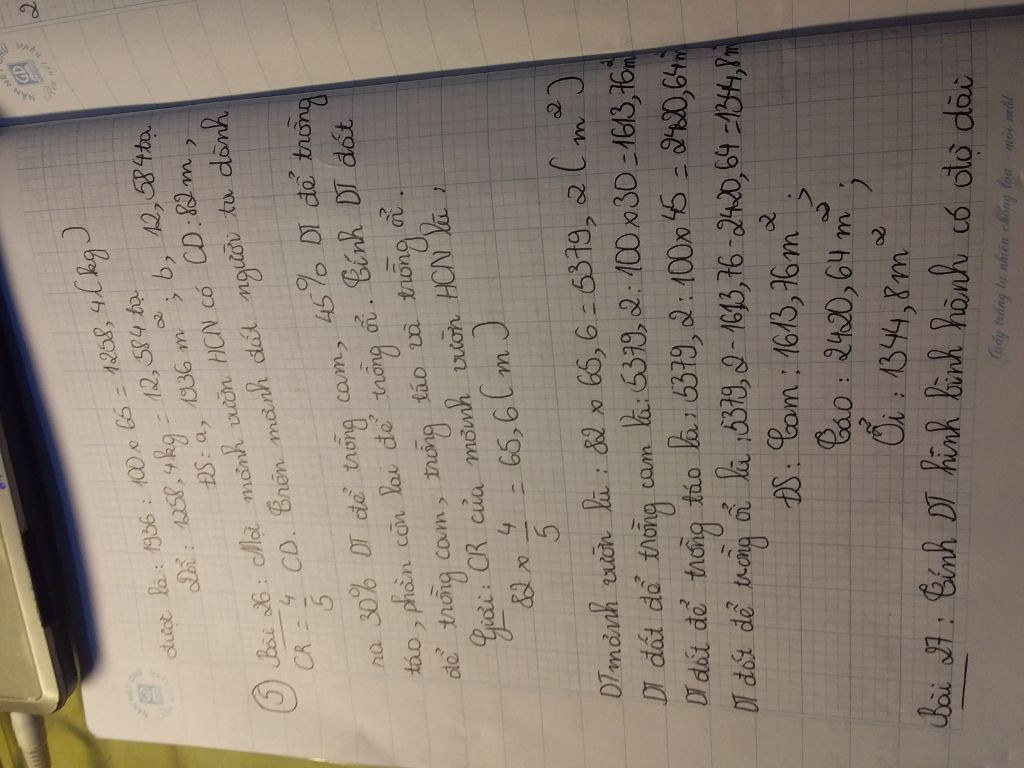 được là: 1936 : 100 x 65 = 1258,4(kg)
Đổi: 1258,4kg = 12,584 tạ
ĐS: a, 1936 m²; b, 12,584tạ.
⑤ Bài 26: Một mảnh vườn HCN có CD: 82 m,
CR = 4/5 CD. Trên mảnh đất người ta dành
ra 30% DT để trồng cam, 45% DT để trồng
táo, phần còn lại để trồng ổi. Tính DT đất
để trồng cam, trồng táo và trồng ổi.
Giải: CR của mảnh vườn HCN là:
82 x 4/5 = 65,6 (m)
DT mảnh vườn là: 82 x 65,6 = 5379,2 (m²)
DT đất để trồng cam là: 5379,2 : 100 x 30 = 1613,76m²
DT đất để trồng táo là: 5379,2 : 100 x 45 = 2420,64m²
DT đất để trồng ổi là: 5379,2 - 1613,76 - 2420,64 = 1344,8m
ĐS: Cam: 1613,76m²;
Táo: 2420,64 m²;
Ổi: 1344,8m²
Bài 27: Tính DT hình bình hành có độ dài
Giấy trắng tự nhiên chống lóa - mỏi mắt
2